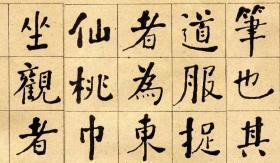 筆也其
道服捉
者為東
仙桃巾
坐觀者